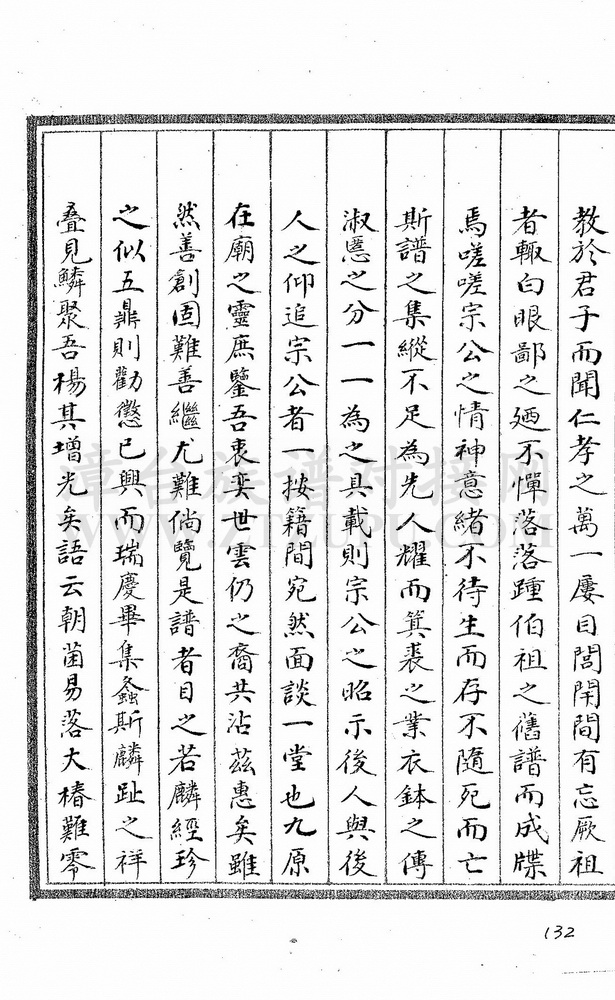 教於君子而聞仁孝之萬一屢目閭閈間有忘厥祖
者輙白眼鄙之廼不憚落落踵伯祖之舊譜而成牒
焉嗟嗟宗公之情神意緒不待生而存不隨死而亡
斯譜之集縱不足為先人耀而箕裘之業衣鉢之傳
淑慝之分一一為之具載則宗公之昭示後人與後
人之仰追宗公者一按籍間宛然面談一堂也九原
在廟之靈庶鑒吾衷奕世雲仍之裔共沾茲惠矣雖
然善創固難善繼尤難倘覽是譜者目之若麟經珍
之似五鼎則勸懲已興而瑞慶畢集螽斯麟趾之祥
叠見鱗聚吾楊其增光矣語云朝菌易落大椿難零
132
漳台族谱对接网
WWW.ZTZUPU.COM